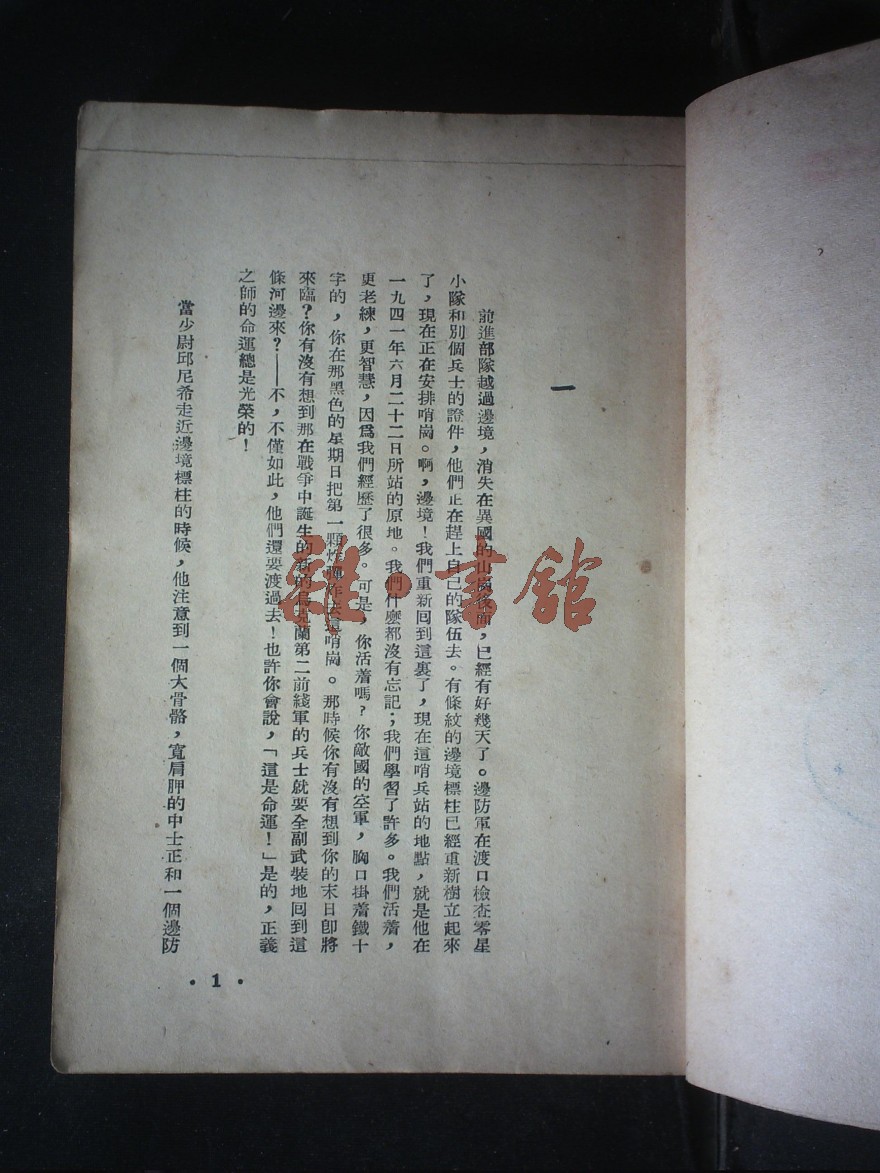 一
前進部隊越過邊境,消失在異國的山崗後面,已經有好幾天了。邊防軍在渡口檢查零星
小隊和別個兵士的證件,他們正在趕上自己的隊伍去。有條紋的邊境標柱已經重新樹立起來
了,現在正在安排哨崗。啊,邊境!我們重新回到這裏了,現在這哨兵站的地點,就是他在
一九四一年六月二十二日所站的原地。我們什麼都沒有忘記;我們學習了許多。我們活着,
更老練,更智慧,因爲我們經歷了很多。可是,你活着嗎?你敵國的空軍,胸口掛着鐵十
字的,你在那黑色的星期日把第一顆炸彈炸去這哨崗。那時候你有沒有想到你的末日卽將
來臨?你有沒有想到那在戰爭中誕生的新的烏克蘭第二前綫軍的兵士就要全副武裝地回到這
條河邊來?——不,不僅如此,他們還要渡過去!也許你會說,「這是命運!」是的,正義
之師的命運總是光榮的!
當少尉邱尼希走近邊境標柱的時候,他注意到一個大骨骼,寬肩胛的中士正和一個邊防
• 1 •
雜·書館